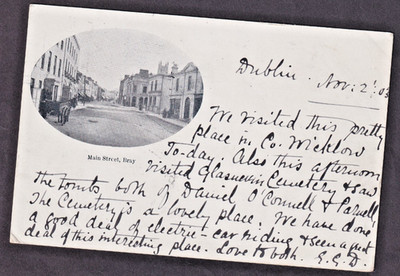 Dublin. Nov: 2: 03
We visited this pretty
place in Co. Wicklow
To-day. Also this afternoon
visited Glasnevin Cemetery & saw
the tombs both of Daniel O'Connell & Parnell,
The Cemetery is a lovely place. We have done
a good deal of electric-car riding & seen a great
deal of this interesting place. Love to both. E.G.D.
Main Street, Bray